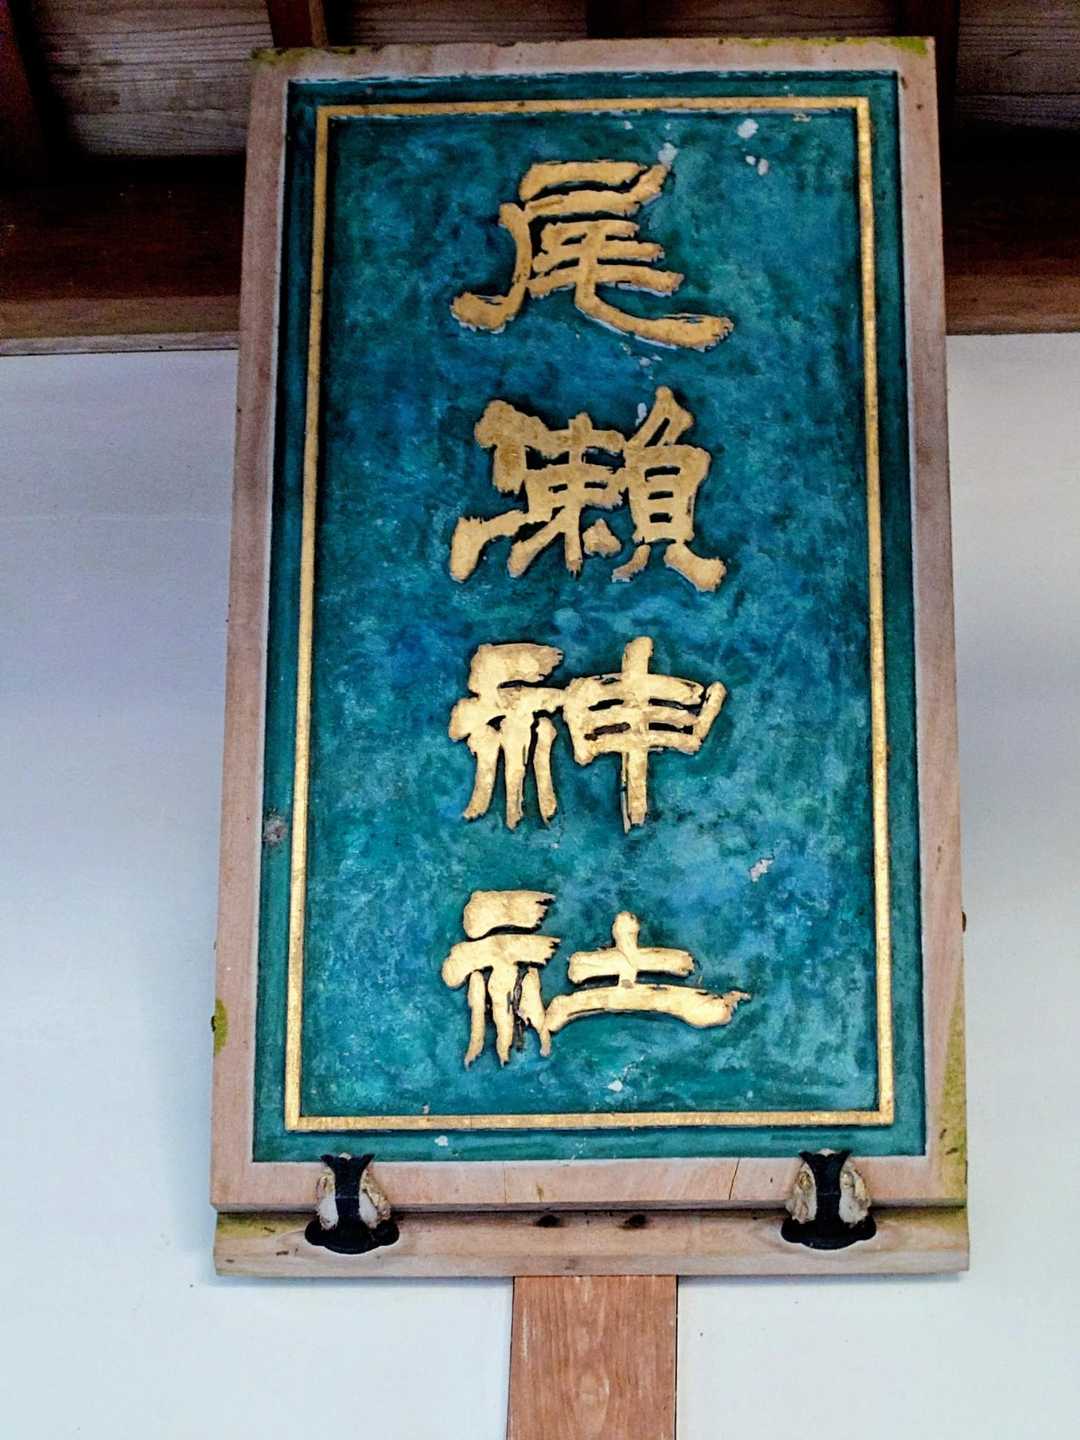 尾瀬神社